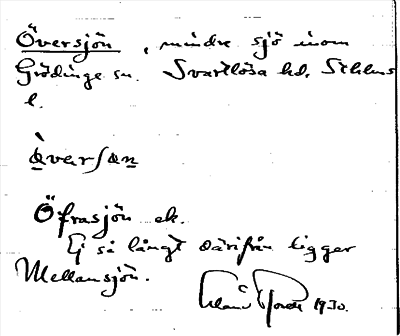 Översjön, mindre sjö inom
Grödinge sn. Svartlösa hd, Sthlms
l.
ö̀verʃøn
Öfrasjön ek.
Ej så långt därifrån ligger
Mellansjön.
1930.